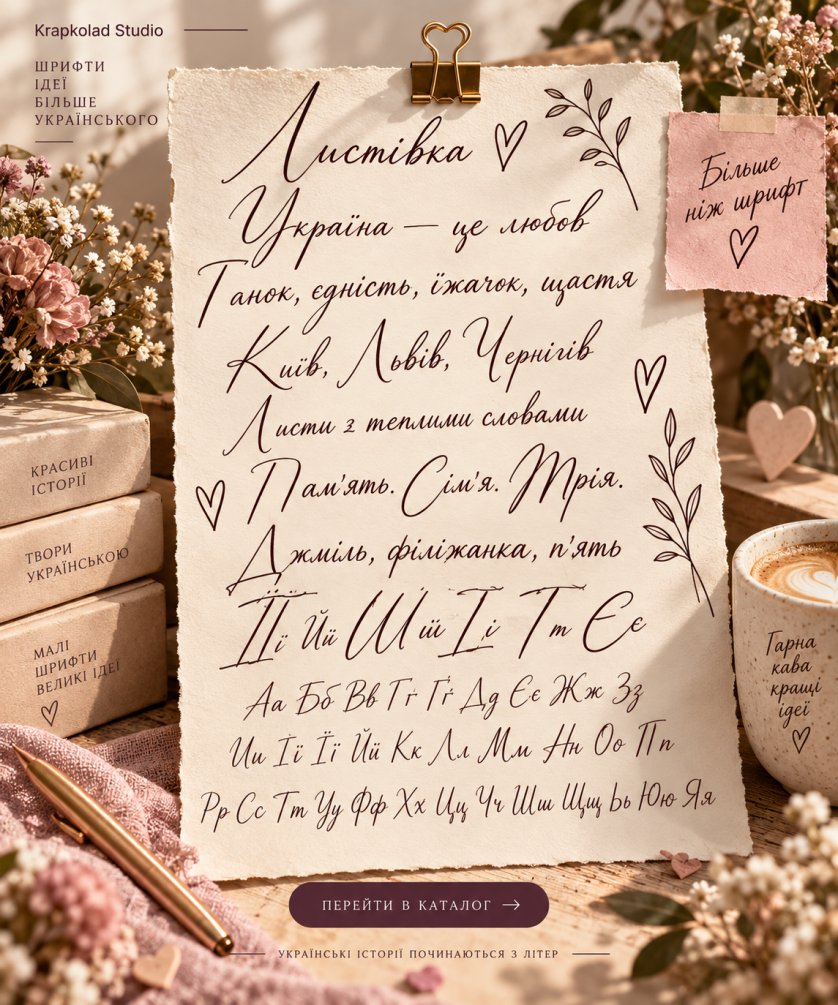 Krapkolad Studio
ШРИФТИ
ІДЕЇ
БІЛЬШЕ
УКРАЇНСЬКОГО
Листівка
Україна — це любов
Танок, єдність, їжачок, щастя
Київ, Львів, Чернігів
Листи з теплими словами
Пам'ять. Сім'я. Мрія.
Джміль, філіжанка, п'ять
Її Йй Шш Іі Тт Єє
Аа Бб Вв Гг Ґґ Дд Єє Жж Зз
Ии Іі Її Йй Кк Лл Мм Нн Оо Пп
Рр Сс Тт Уу Фф Хх Цц Чч Шш Щщ Ьь Юю Яя
Більше
ніж шрифт
КРАСИВІ
ІСТОРІЇ
ТВОРИ
УКРАЇНСЬКОЮ
МАЛІ
ШРИФТИ
ВЕЛИКІ ІДЕЇ
Гарна
кава
кращі
ідеї
ПЕРЕЙТИ В КАТАЛОГ →
УКРАЇНСЬКІ ІСТОРІЇ ПОЧИНАЮТЬСЯ З ЛІТЕР